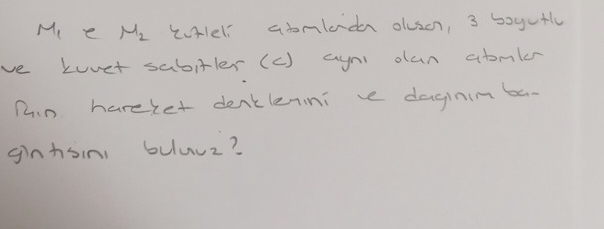 M₁ e M₂ kütleli atomlardan oluşan, 3 boyutlu
ve kuvet sabitler (c) aynı olan atomlar
için hareket denklemini ve dağınım ba-
ğıntısını bulunuz?